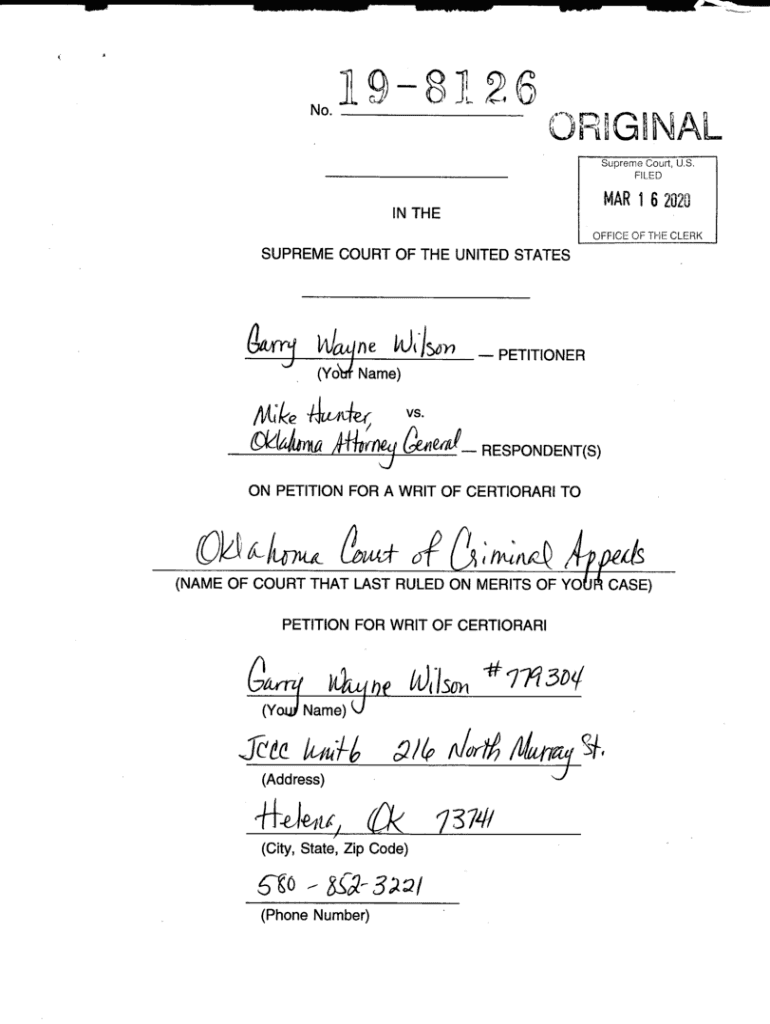 No. 19-8126
ORIGINAL
Supreme Court, U.S.
FILED
MAR 16 2020
OFFICE OF THE CLERK
IN THE
SUPREME COURT OF THE UNITED STATES
Garry Wayne Wilson — PETITIONER
(Your Name)
Mike Hunter, vs.
Oklahoma Attorney General — RESPONDENT(S)
ON PETITION FOR A WRIT OF CERTIORARI TO
Oklahoma Court of Criminal Appeals
(NAME OF COURT THAT LAST RULED ON MERITS OF YOUR CASE)
PETITION FOR WRIT OF CERTIORARI
Garry Wayne Wilson #779304
(Your Name)
JCCC Unit 6 216 North Murray St.
(Address)
Helena, OK 73741
(City, State, Zip Code)
580-852-3221
(Phone Number)